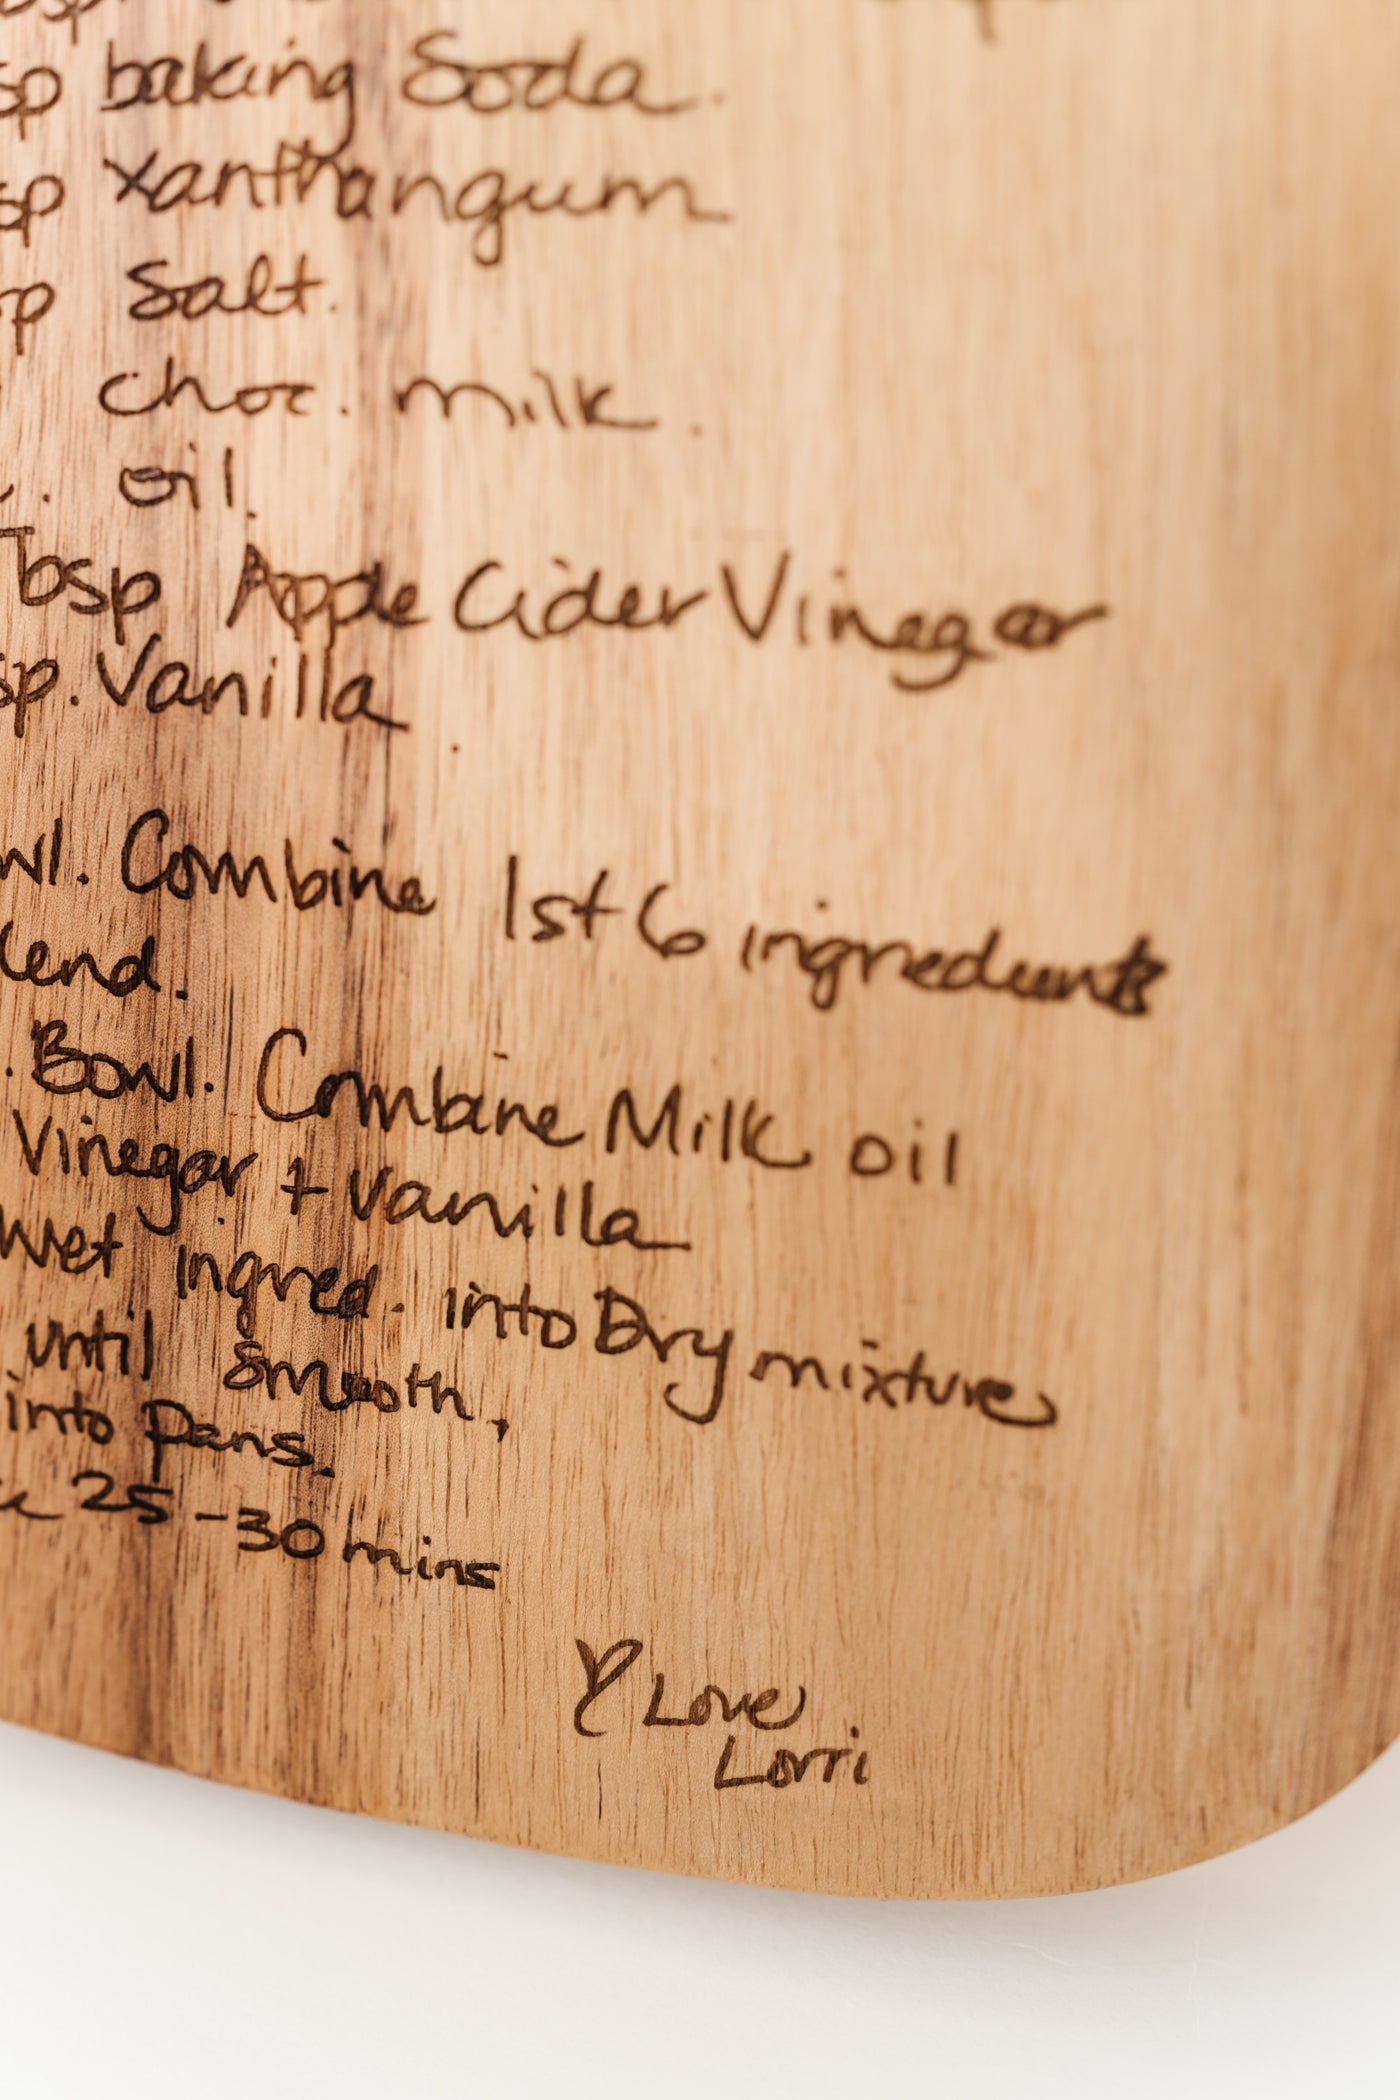 sp baking Soda.
sp xanthangum
sp Salt.
choc. milk.
. oil.
Tbsp Apple Cider Vinegar
sp. Vanilla.
wl. Combine 1st 6 ingredients
lend.
. Bowl. Combine Milk oil
Vinegar + Vanilla
Wet ingred. into Dry mixture
until smooth,
into pans.
25-30 mins
Love
Lorri